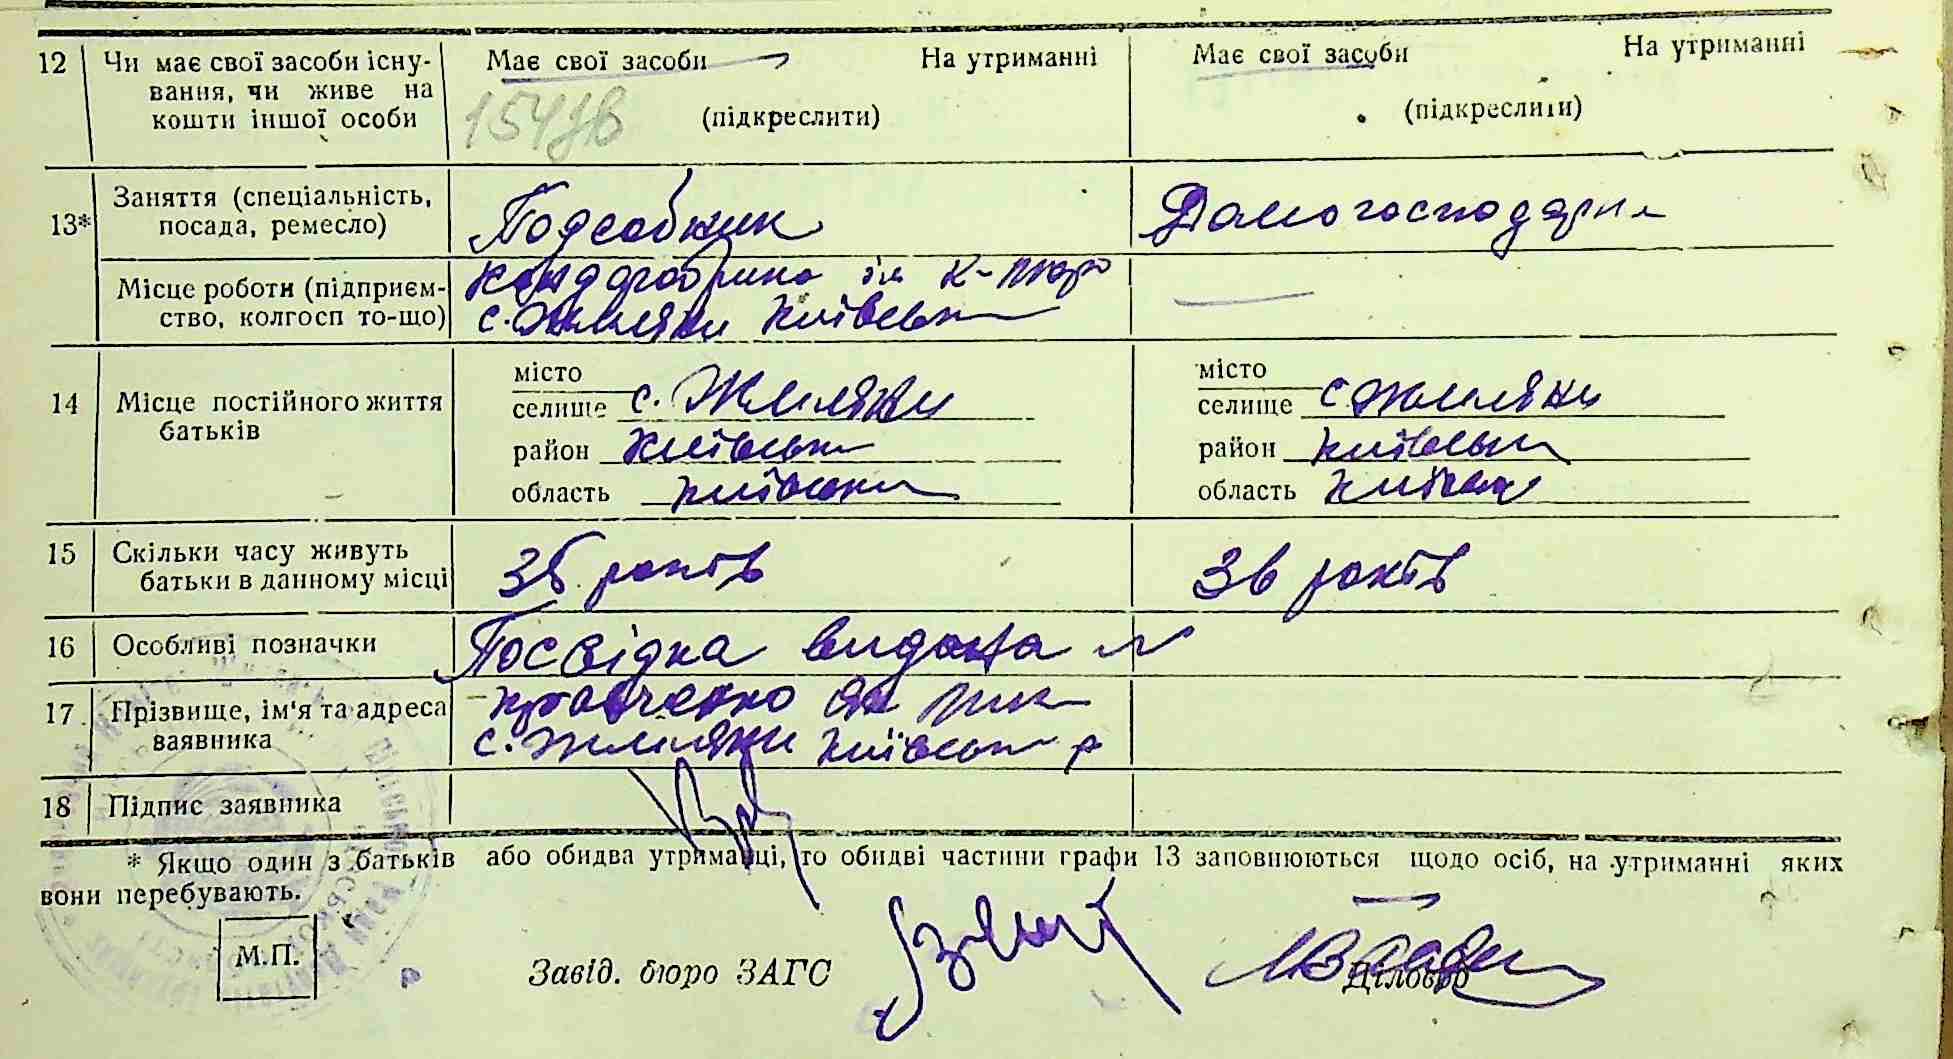 12 Чи має свої засоби існу- Має свої засоби На утриманні Має свої засоби На утриманні
вання, чи живе на
кошти іншої особи (підкреслити) (підкреслити)
13* Заняття (спеціальність, Подсобник Домогосподарка
посада, ремесло)
Місце роботи (підприєм-
ство, колгосп то-що) с. Жуляни Київськ
14 Місце постійного життя місто місто
батьків селище с. Жуляни селище с. Жуляни
район Київськ район Київськ
область Київська область Київськ
15 Скільки часу живуть 36 років 36 років
батьки в данному місці
16 Особливі позначки Посвідка видана
17. Прізвище, ім'я та адреса Кравченко
заявника с. Жуляни Київськ р
18 Підпис заявника
* Якщо один з батьків або обидва утриманці, то обидві частини графи 13 заповнюються щодо осіб, на утриманні яких
вони перебувають.
М.П.
Завід. бюро ЗАГС Діловод